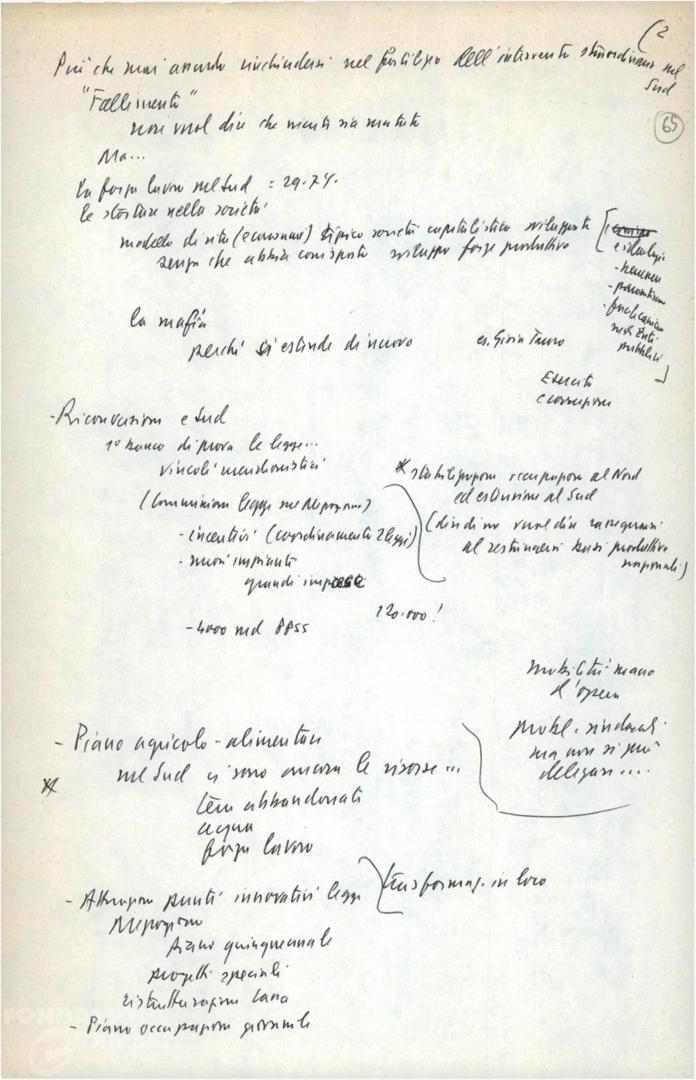 (2
Più che mai assurdo rinchiudersi nel fortilizio dell'intervento straordinario nel
Sud
65
"Fallimento"
non vuol dire che niente sia mutato
Ma...
La forza lavoro nel Sud = 29.74.
le storture nella società
modello di vita (economico) tipico società capitalistica sviluppata
senza che abbia corrisposto sviluppo forze produttive
e ideologia
- 
- parassitismo
- 
negli Enti
pubblici
la mafia
perché si estende di nuovo
es. Gioia Tauro
Esercito
e corruzione
- Riconversione e Sud
1° banco di prova la legge...
vincoli meridionalistici
(Commissione legge sul Mezzogiorno)
- incentivi (coordinamento 2 leggi)
- nuovi impianti
grandi imprese
* stabilizzazione occupazione al Nord
ed estensione al Sud
(dir di no vuol dire rassegnarsi
al restringersi basi produttive
nazionali)
120.000!
- 4000 md
mobilità mano
d'opera
probl. sindacali
ma non si può
delegare....
- Piano agricolo-alimentare
* nel Sud ci sono ancora le risorse...
terre abbandonate
acqua
forza lavoro
- Attuazione punti innovativi legge
Mezzogiorno
trasformaz. in loco
piano quinquennale
progetti speciali
ristrutturazione Cassa
- Piano occupazione giovanile